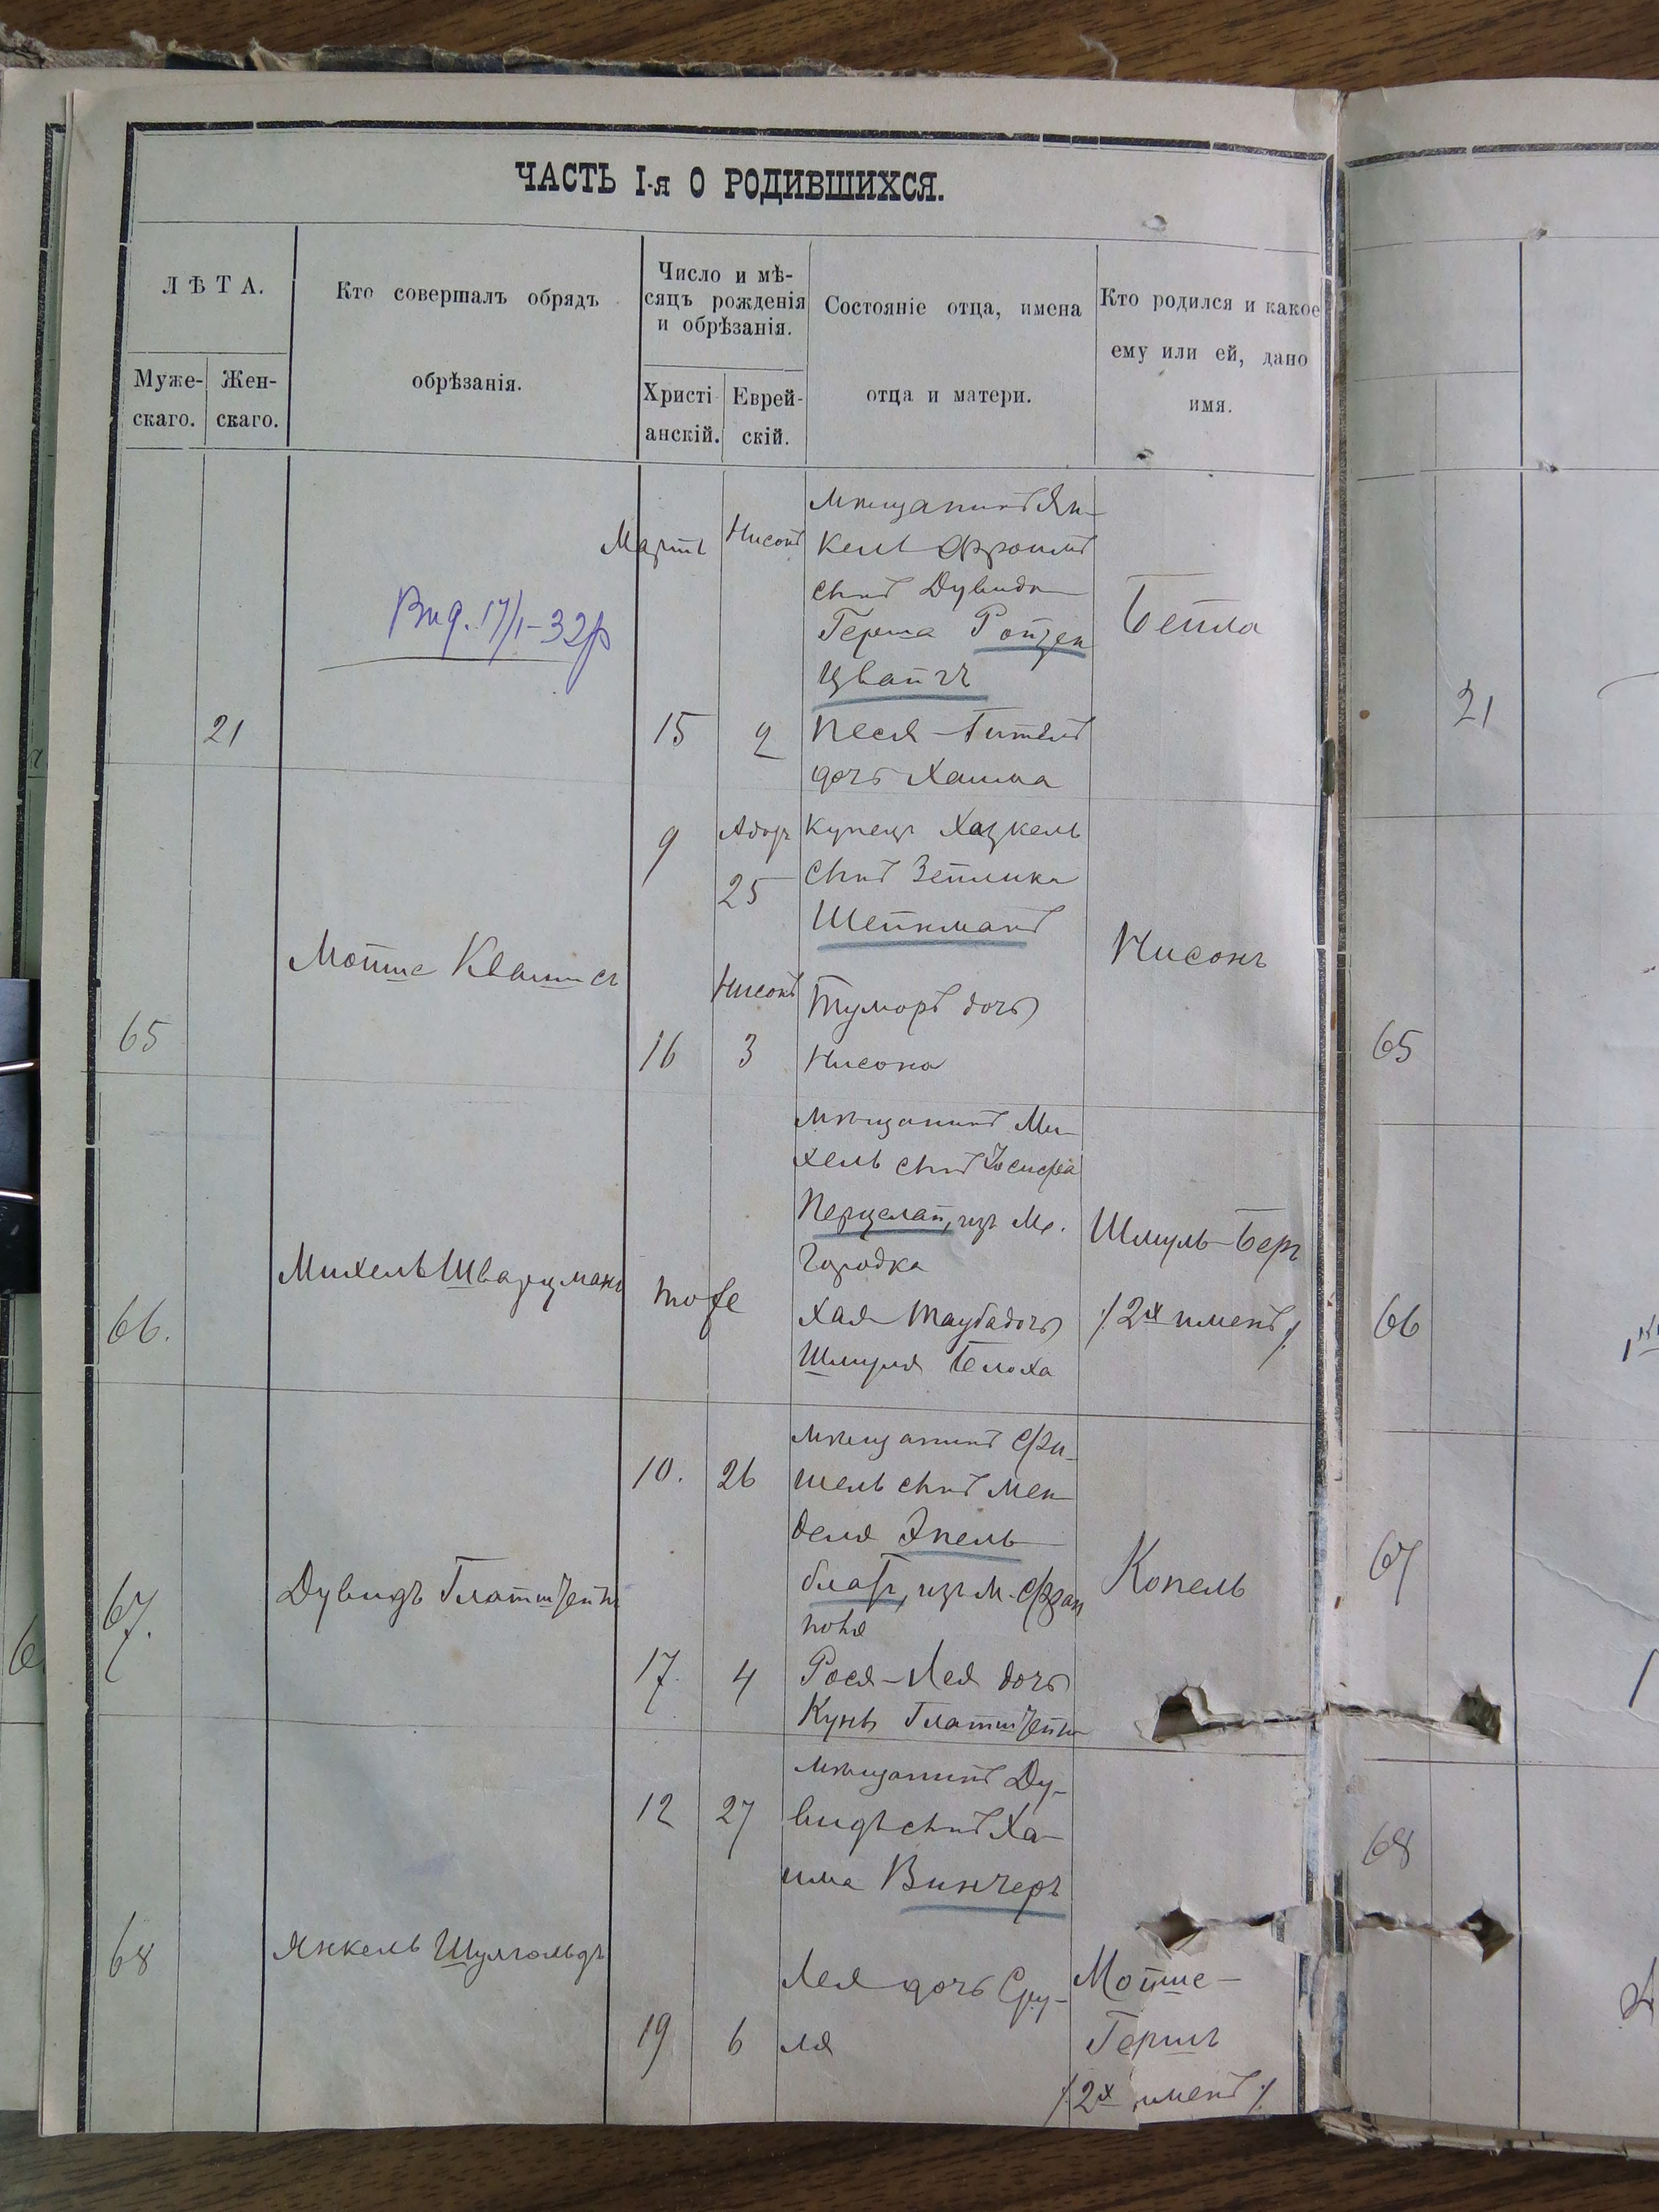 ЧАСТЬ I-я О РОДИВШИХСЯ.
ЛѢТА.
Муже-
скаго.
Жен-
скаго.
Кто совершалъ обрядъ
обрѣзанія.
Число и мѣ-
сяцъ рожденія
и обрѣзанія.
Христі
анскій.
Еврей-
скій.
Состояніе отца, имена
отца и матери.
Кто родился и какое
ему или ей, дано
имя.
21
Вид. 17/I-32р
Мартъ
Нисонъ
15
2
мѣщанинъ Ян-
кель Фроимъ
сынъ Дувида
Герша Ройзен
цвайгъ
Песя-Гитель
дочь Хаима
Бейла
21
65
Мойше
9
Адоръ
25
Нисонъ
16
3
Купецъ Хацкель
сынъ Зейлика
Шейнманъ
Тумеръ дочь
Нисона
Нисонъ
65
66.
Михель Шварцманъ
тоже
мѣщанинъ Ми-
хель сынъ Іосифа
изъ м.
Городка
Хая Тауба дочь
Шмуля
Шмуль-Беръ
/.2х именъ./
66
67.
Дувидъ Глатштейнъ
10.
26
17.
4
мѣщанинъ Фи-
шель сынъ Мен
деля Эпель-
блатъ, изъ м. Фрам
поля
Рося-Лея дочь
Куны Глатштейнъ
Копель
67
68
Янкель Шулгольдъ
12
27
19
6
мѣщанинъ Ду-
видъ сынъ Ха-
има Винчеръ
Лея дочь Сру-
ля
Мойше-
Гершъ
/.2х именъ./
68